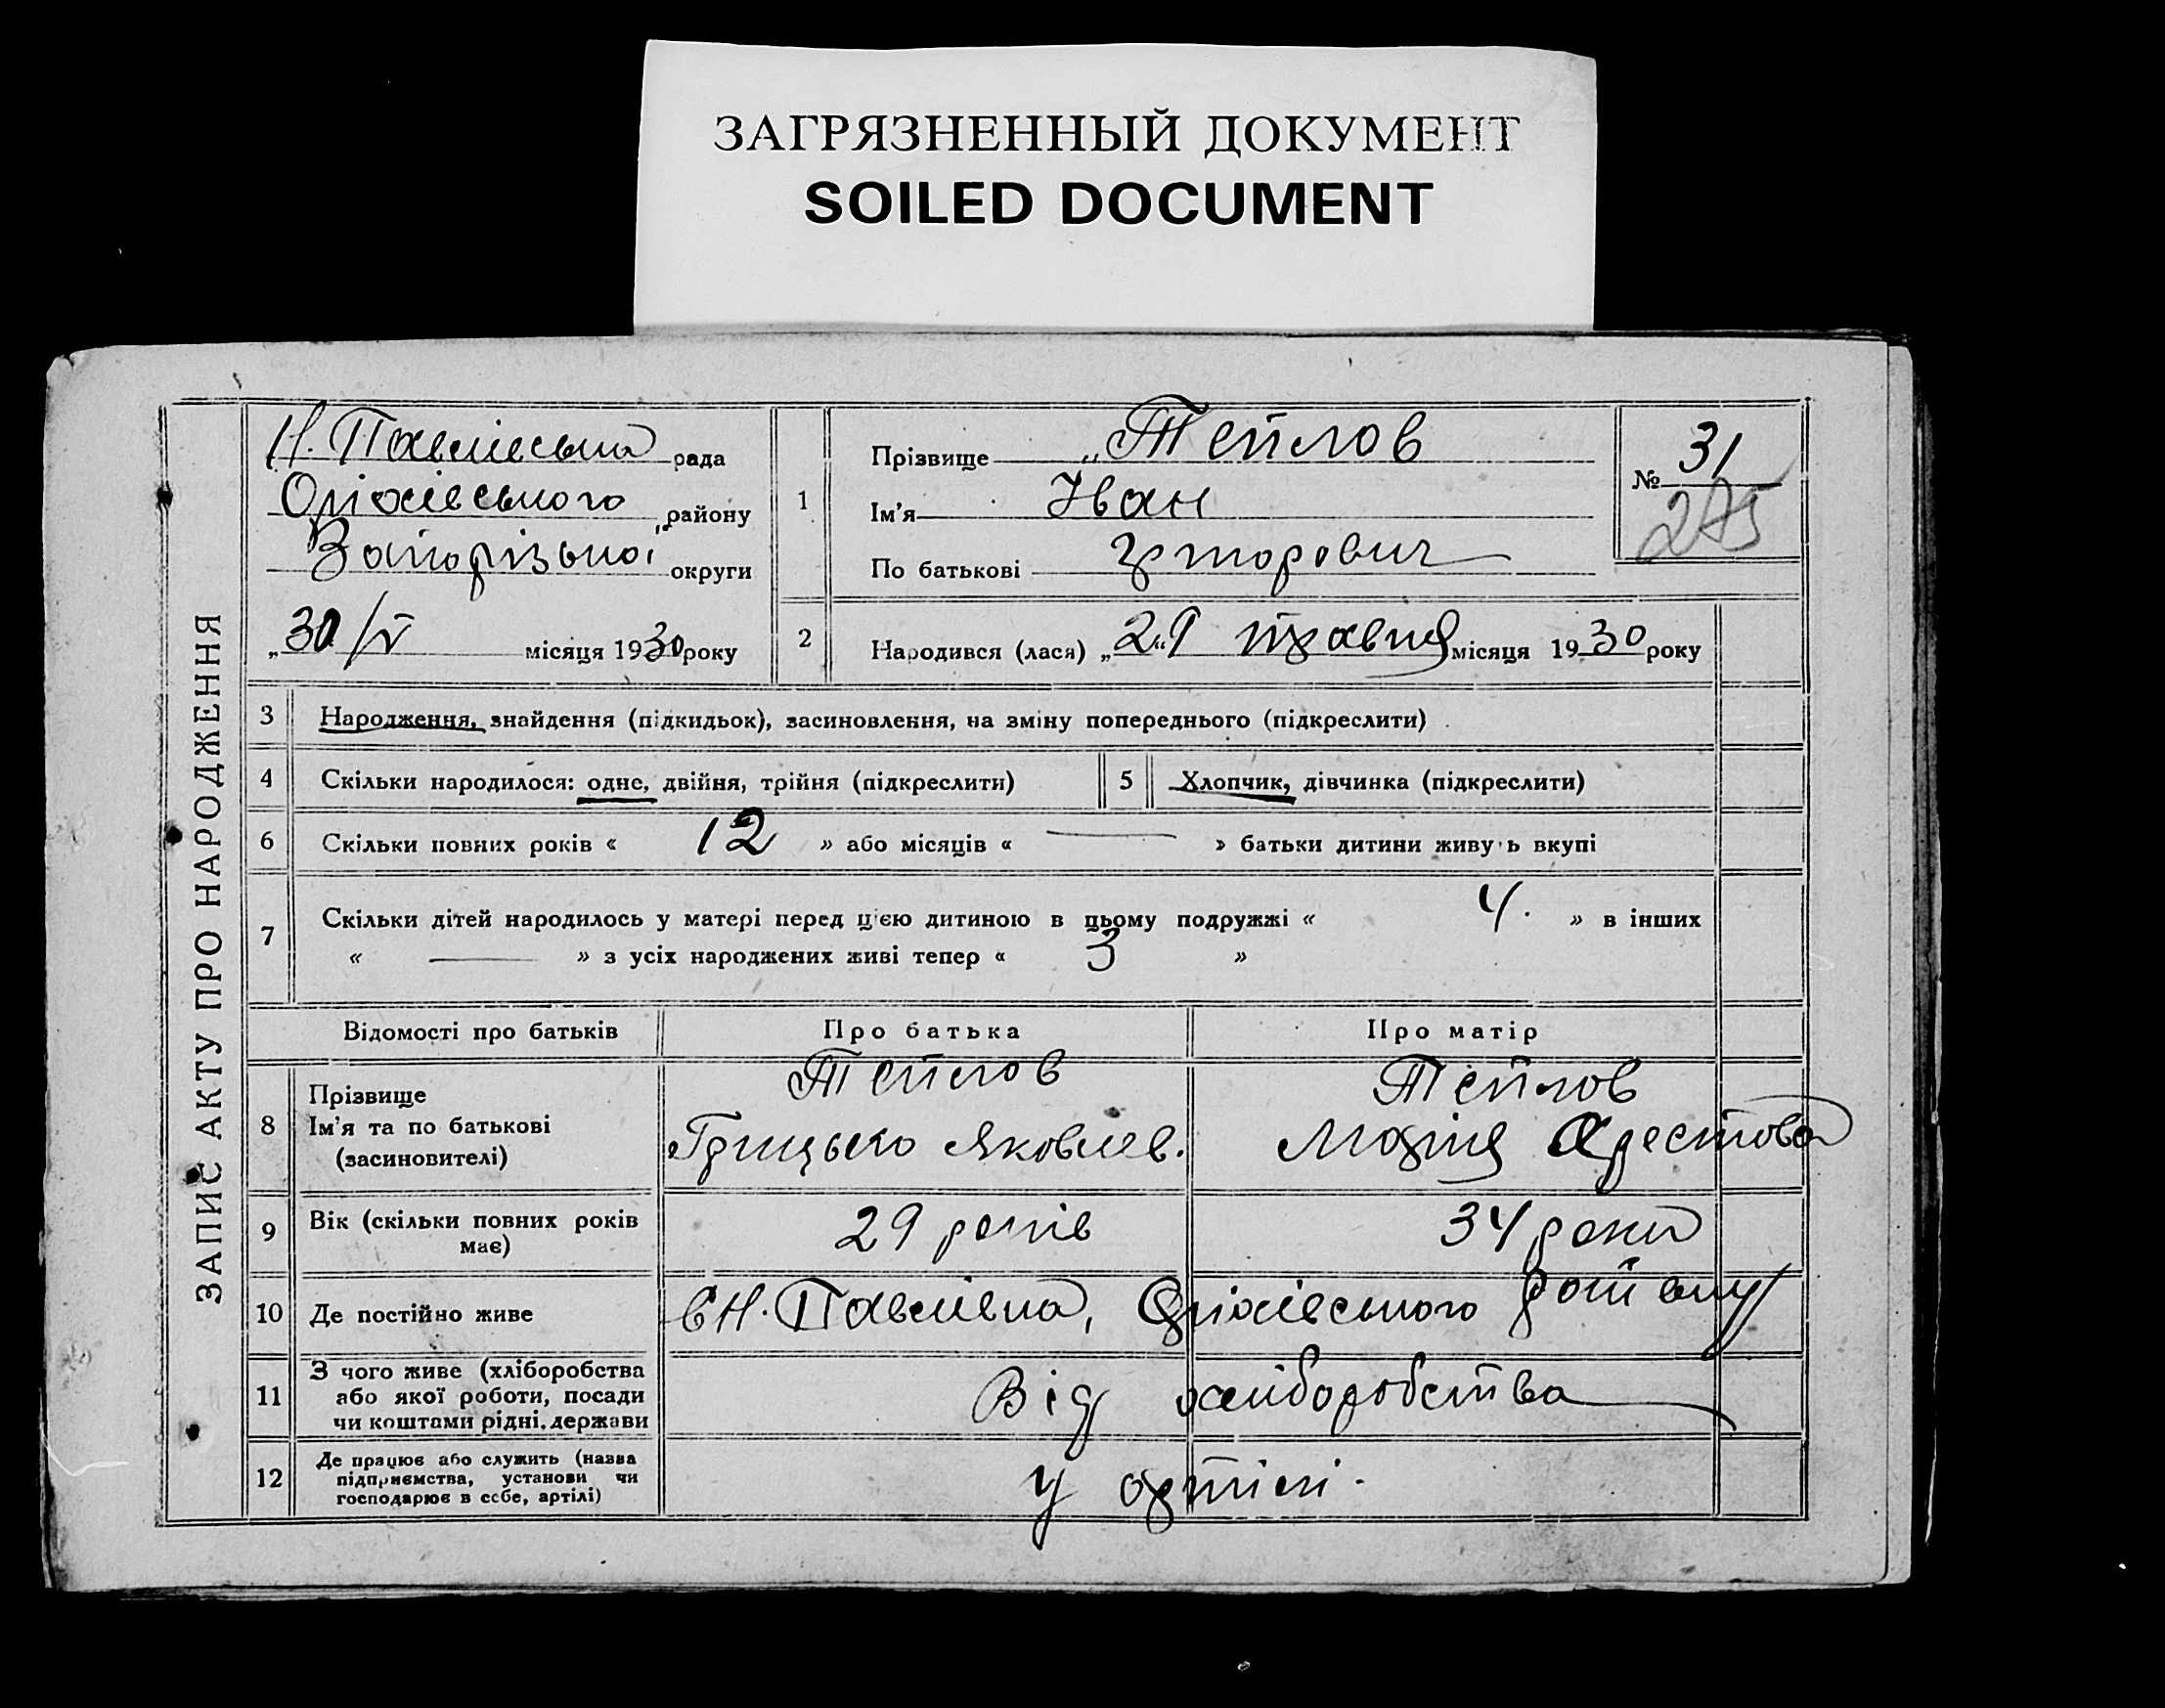 ЗАГРЯЗНЕННЫЙ ДОКУМЕНТ
SOILED DOCUMENT
ЗАПИС АКТУ ПРО НАРОДЖЕННЯ
Н. Павлівська рада
Оріхівського району
Запорізької округи
„30/V місяця 1930 року
1
Прізвище „Теплов
Ім'я Іван
По батькові
№ 31
275
2
Народився (лася) „29 травня місяця 1930 року
3 Народження, знайдення (підкидьок), засиновлення, на зміну попереднього (підкреслити)
4 Скільки народилося: одне, двійня, трійня (підкреслити)
5 Хлопчик, дівчинка (підкреслити)
6 Скільки повних років « 12 » або місяців « — » батьки дитини живуть вкупі
7 Скільки дітей народилось у матері перед цією дитиною в цьому подружжі « 4. » в інших
« — » з усіх народжених живі тепер « 3 »
Відомості про батьків Про батька Про матір
8
Прізвище
Ім'я та по батькові
(засиновителі)
Теплов
Грицько Яковлев.
Теплов
Марія Орестова
9
Вік (скільки повних років
має)
29 років
34 роки
10 Де постійно живе
в Н. Павлівка, Оріхівського району
11
З чого живе (хліборобства
або якої роботи, посади
чи коштами рідні, держави
Від хліборобства
12
Де працює або служить (назва
підприємства, установи чи
господарює в себе, артілі)
У артілі.